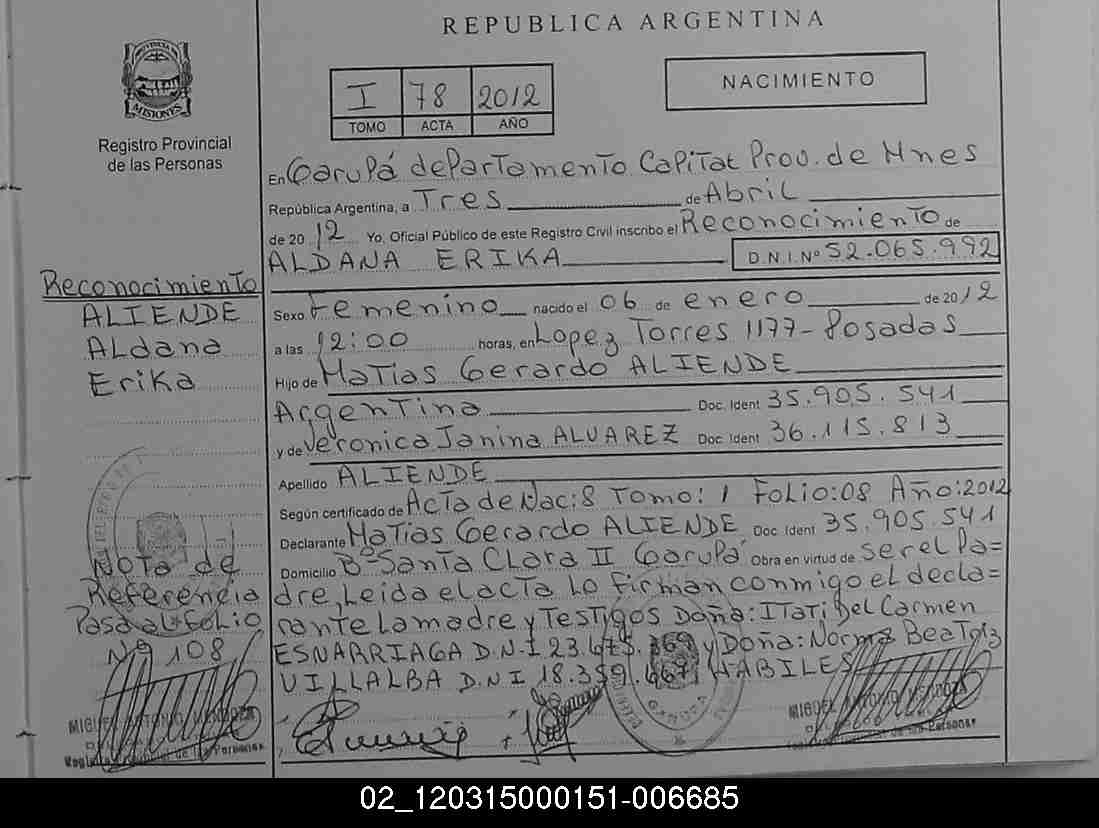 REPUBLICA ARGENTINA
PROVINCIA DE
MISIONES
Registro Provincial
de las Personas
I 78 2012
TOMO ACTA AÑO
NACIMIENTO
En Garupá departamento Capital Prov. de Mnes
República Argentina, a Tres de Abril
de 2012 Yo, Oficial Público de este Registro Civil inscribo el Reconocimiento de
ALDANA ERIKA D.N.I. Nº 52.065.992
Reconocimiento
ALIENDE
ALdana
Erika
Sexo Femenino nacido el 06 de enero de 2012
a las 12:00 horas, en Lopez Torres 1177- Posadas
Hijo de Matias Gerardo ALIENDE
Argentina Doc. Ident 35.905.541
y de Veronica Janina ALVAREZ Doc Ident 36.115.813
Apellido ALIENDE
Según certificado de Acta de Nac: 8 Tomo: 1 Folio: 08 Año: 2012
Declarante Matias Gerardo ALIENDE Doc Ident 35.905.541
Domicilio Bº Santa Clara II Garupá Obra en virtud de ser el Pa=
dre, Leida el acta Lo firman conmigo el decla=
rante La madre y Testigos Doña: Itati Del Carmen
ESNARRIAGA D.N.I 23.675.369 y Doña: Norma Beatriz
VILLALBA D.N I 18.359.667, HABILES
Nota de
Referencia
Pasa al Folio
Nº 108
MIGUEL ANTONIO MENDOZA
Registro Provincial de las Personas
MIGUEL ANTONIO MENDOZA
de las Personas
02_120315000151-006685